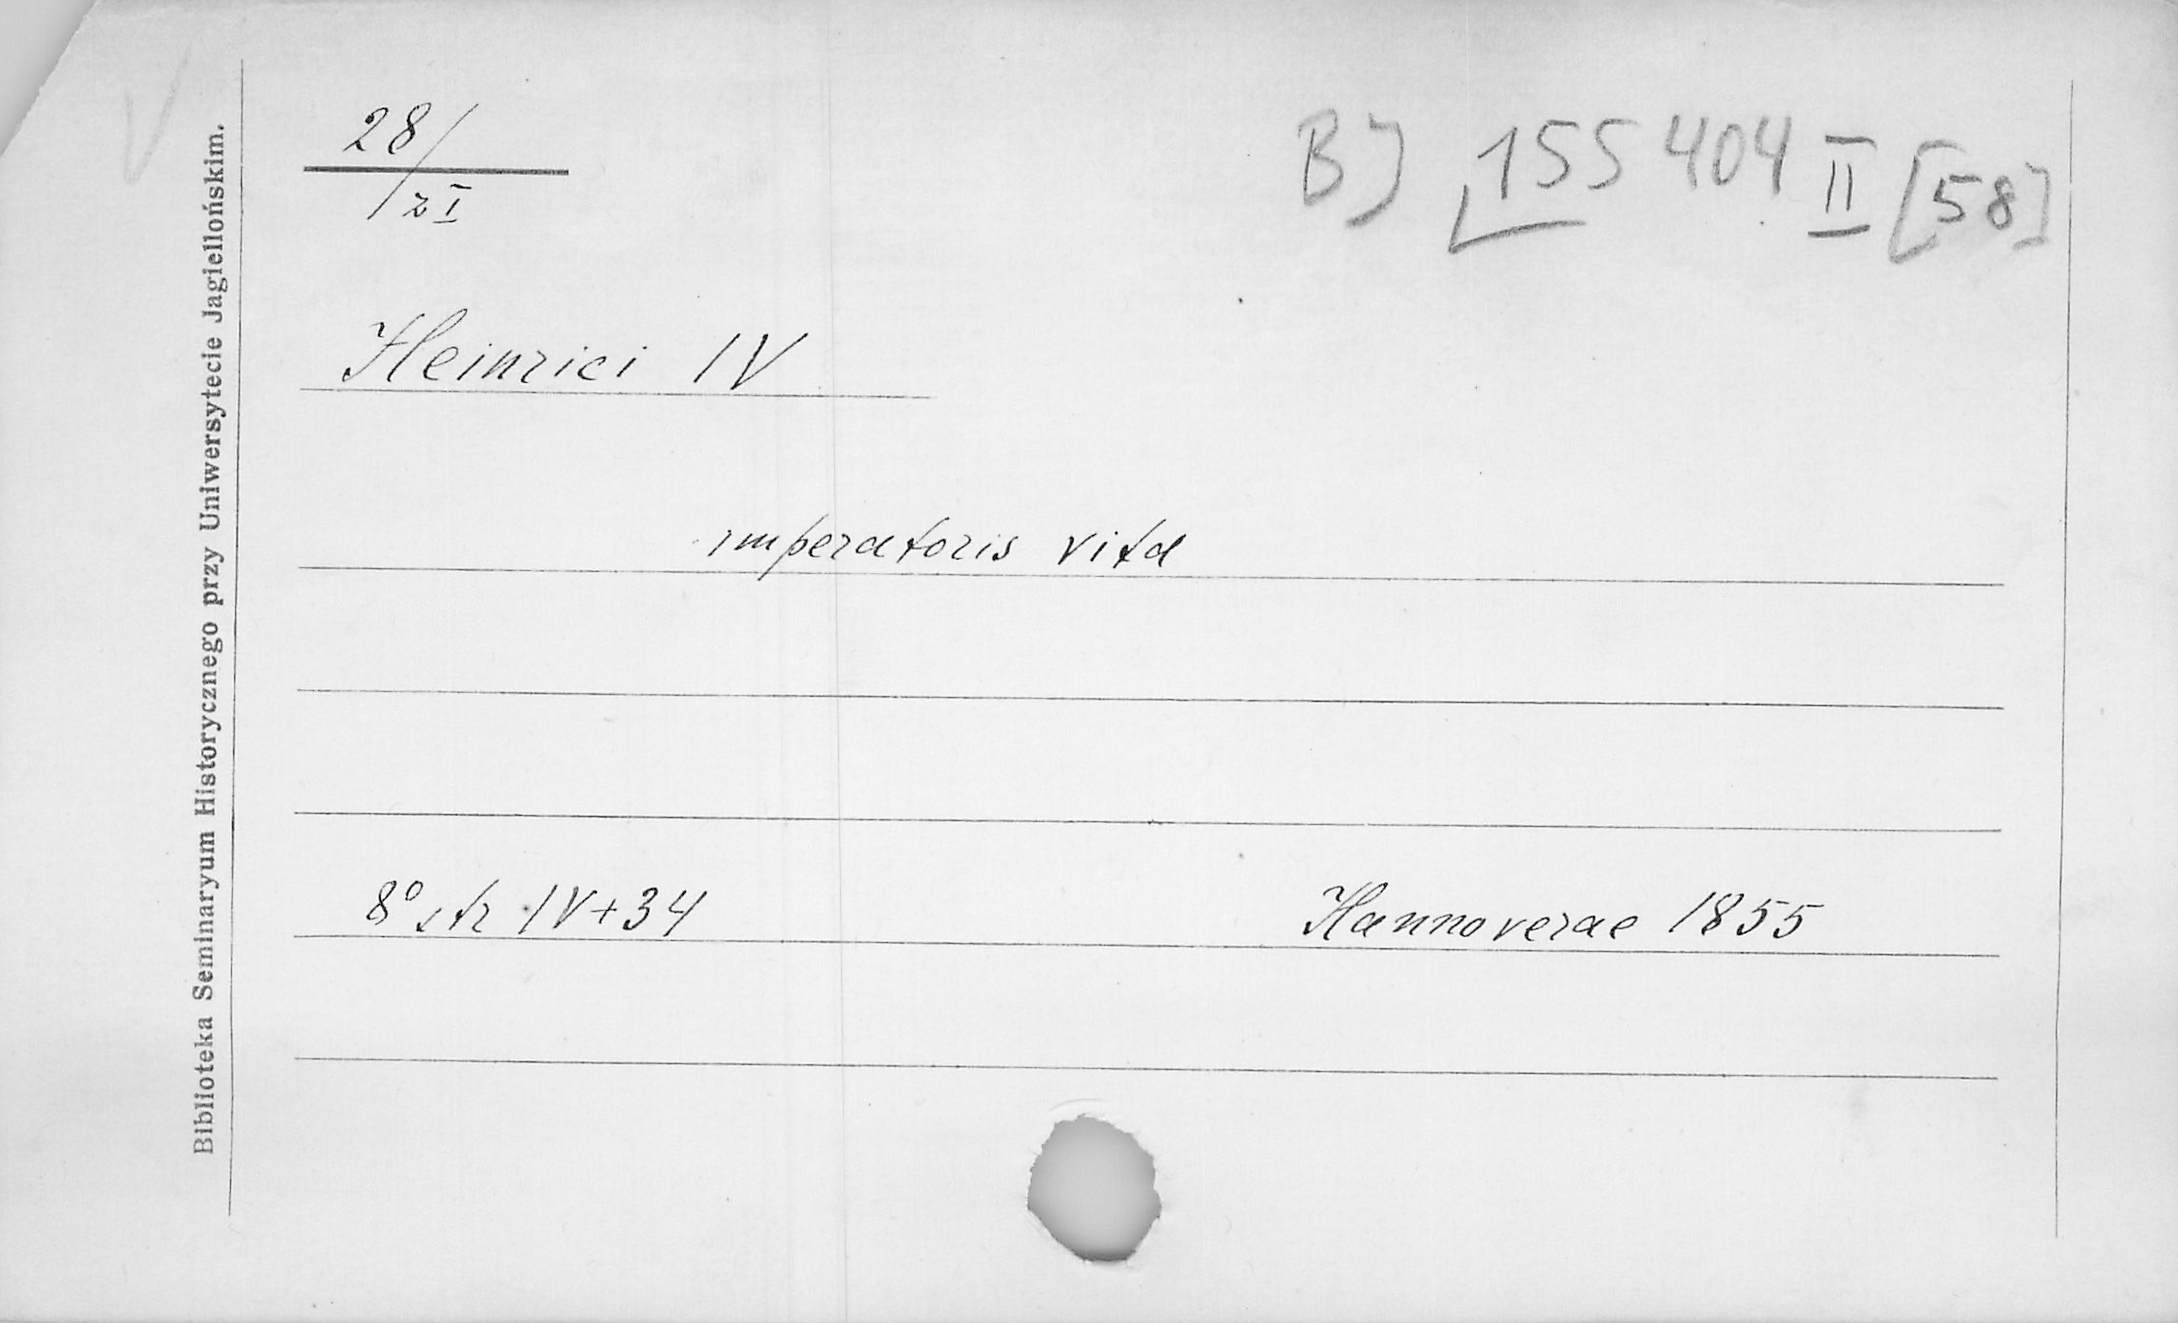 Biblioteka Seminaryum Historycznego przy Uniwersytecie Jagiellońskim.
28/zI
BJ 155404 II [58]
Heinrici IV
imperatoris vita
8° str IV+34
Hannoverae 1855